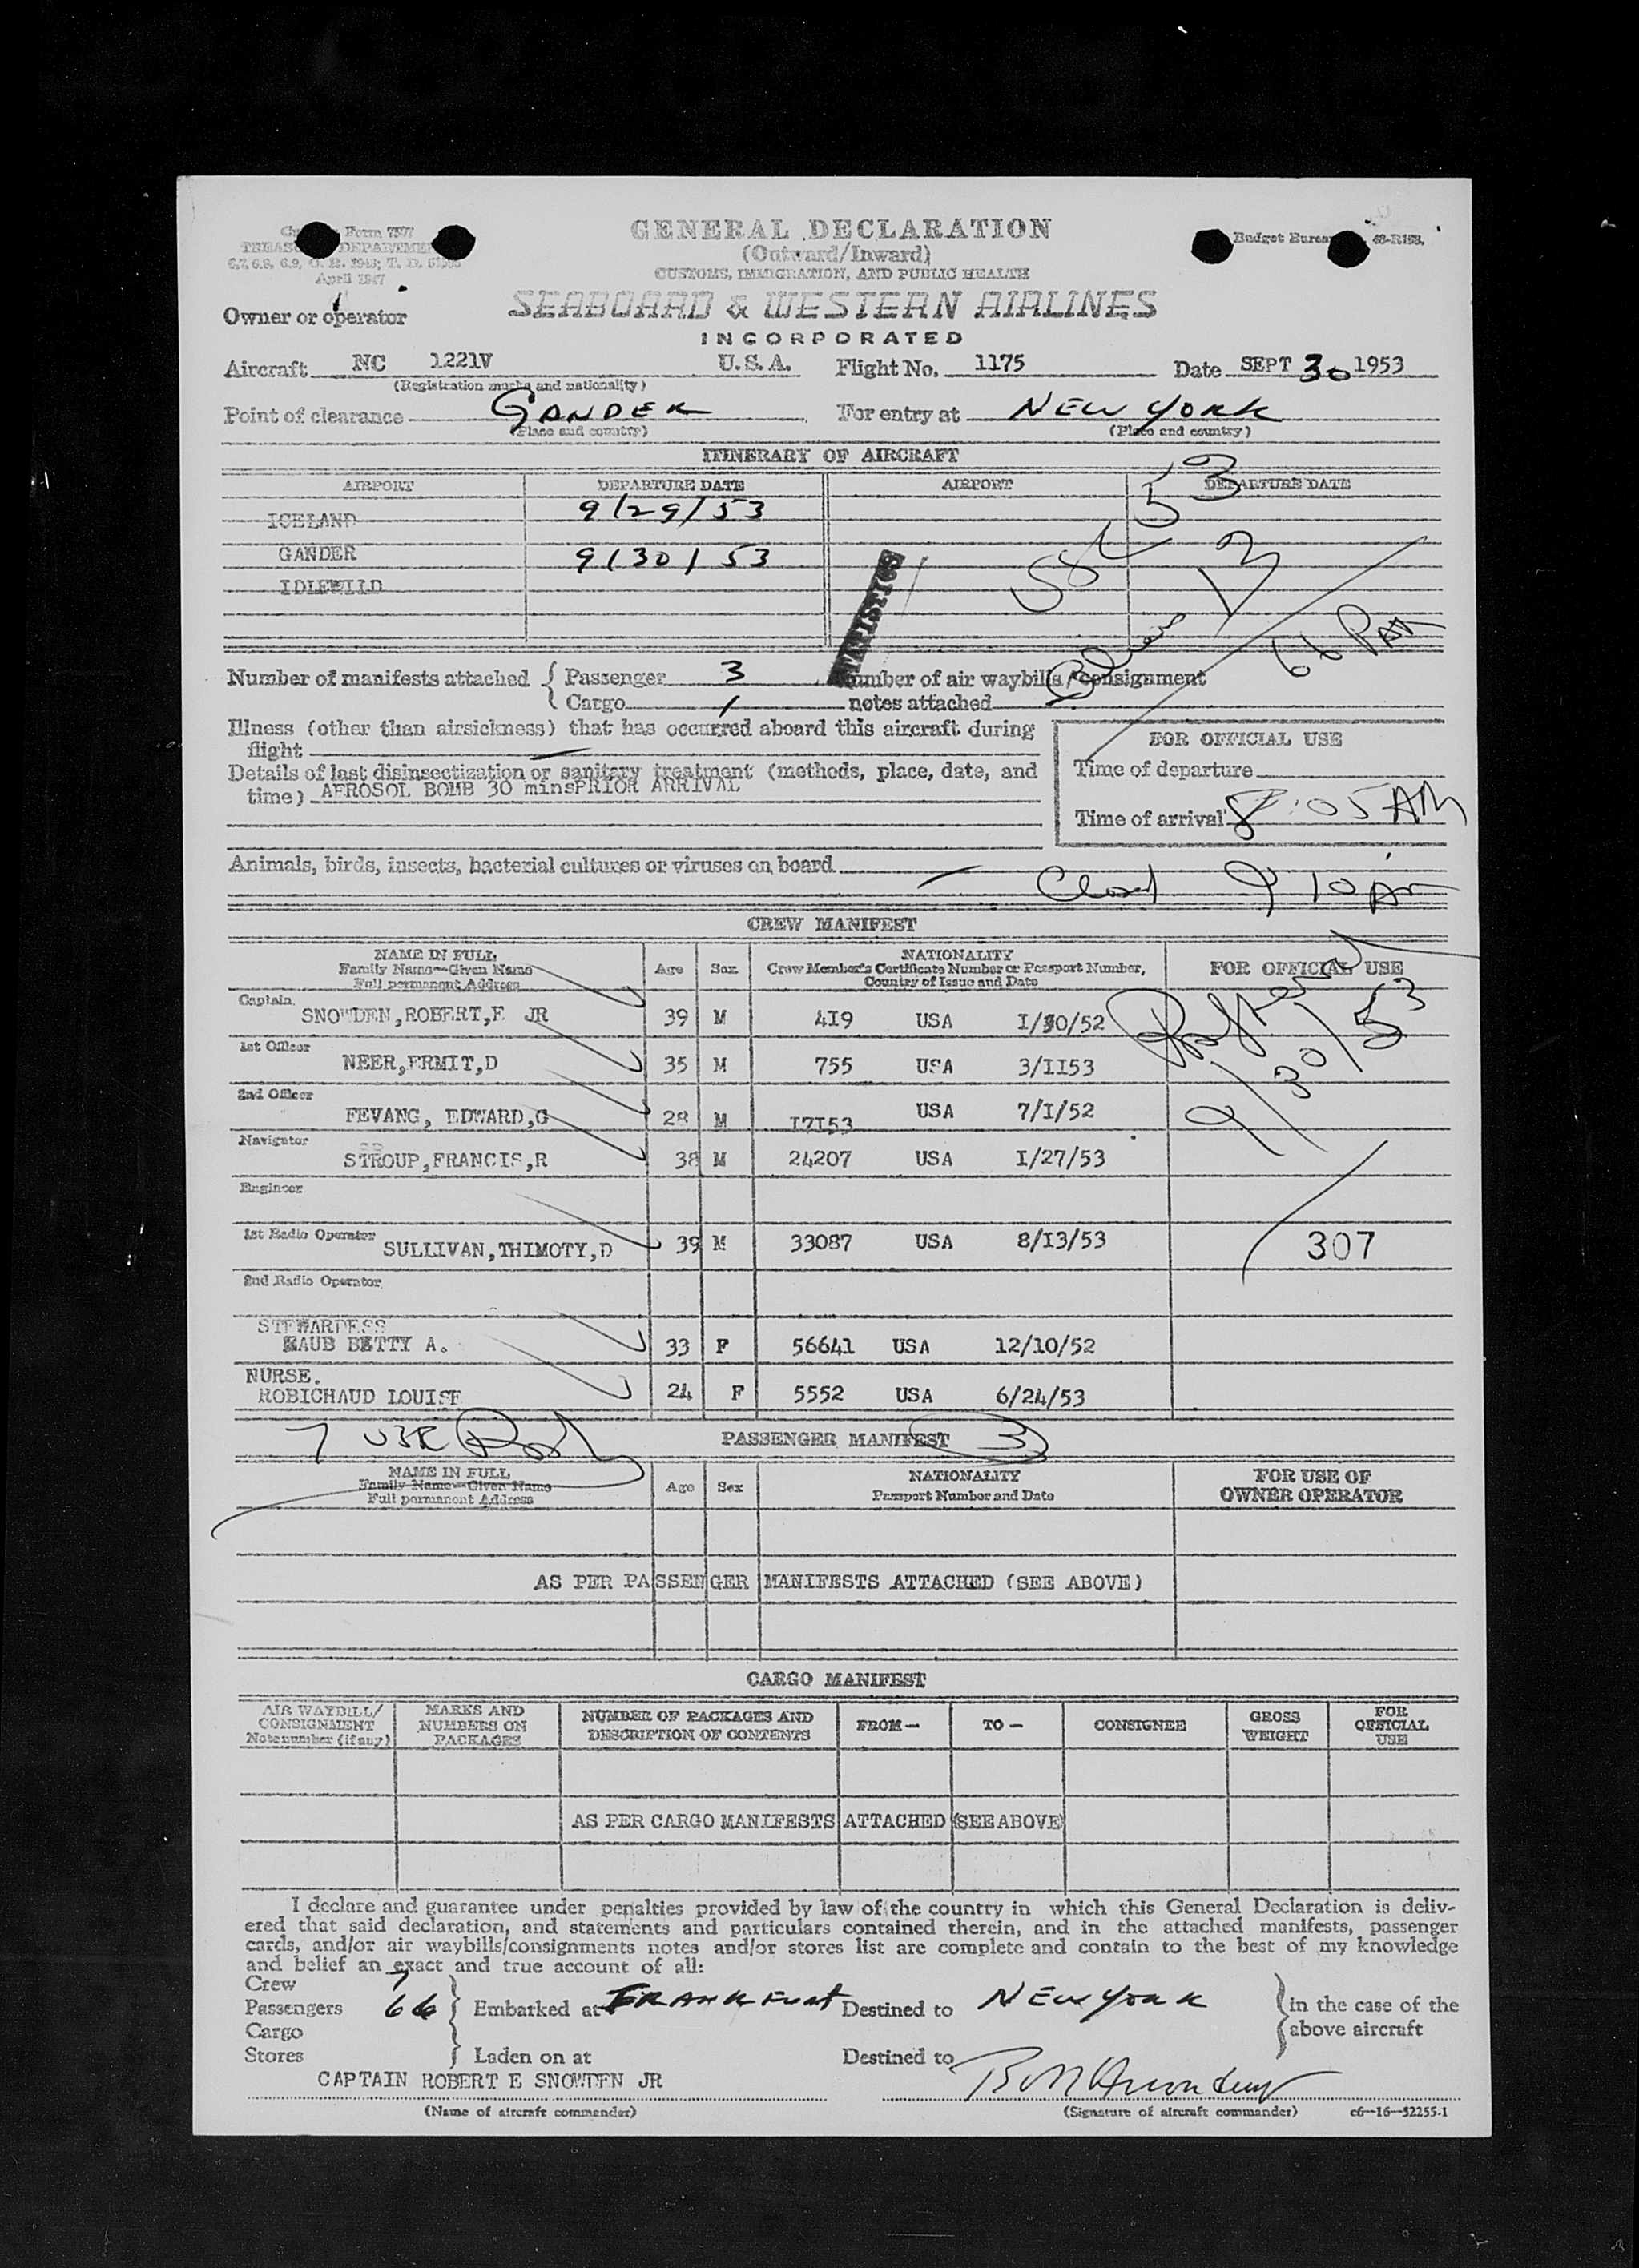 GENERAL DECLARATION
(Outward/Inward)
CUSTOMS, IMMIGRATION, AND PUBLIC HEALTH
Form 7507
April 1947
Budget Bureau
Owner or operator
SEABOARD & WESTERN AIRLINES
INCORPORATED
Aircraft NC 1221V U.S.A. Flight No. 1175 Date SEPT 30 1953
(Registration marks and nationality)
Point of clearance GANDER For entry at NEW YORK
(Place and country) (Place and country)
ITINERARY OF AIRCRAFT
AIRPORT DEPARTURE DATE AIRPORT DEPARTURE DATE
ICELAND 9/29/53
GANDER 9/30/53
IDLEWILD
53
13
66 Pax
Number of manifests attached { Passenger 3 Number of air waybills/consignment
Cargo 1 notes attached
Illness (other than airsickness) that has occurred aboard this aircraft during
flight
FOR OFFICIAL USE
Details of last disinsectization or sanitary treatment (methods, place, date, and
time) AEROSOL BOMB 30 minsPRIOR ARRIVAL
Time of departure
Time of arrival 8:05 AM
Animals, birds, insects, bacterial cultures or viruses on board
Closed 9 10 AM
CREW MANIFEST
NAME IN FULL
Family Name—Given Name
Full permanent Address
Age Sex
NATIONALITY
Crew Member's Certificate Number or Passport Number,
Country of Issue and Date
FOR OFFICIAL USE
Captain
SNOWDEN,ROBERT,E JR 39 M 419 USA I/30/52
1st Officer
NEER,ERMIT,D 35 M 755 USA 3/II53
2nd Officer
FEVANG, EDWARD,G 28 M I7I53 USA 7/I/52
9/30/53
Navigator
STROUP,FRANCIS,R 38 M 24207 USA I/27/53
Engineer
1st Radio Operator
SULLIVAN,THIMOTY,D 39 M 33087 USA 8/I3/53
307
2nd Radio Operator
STEWARDESS
RAUB BETTY A. 33 F 56641 USA 12/10/52
NURSE.
ROBICHAUD LOUISE 24 F 5552 USA 6/24/53
7 USC
PASSENGER MANIFEST 3
NAME IN FULL
Family Name—Given Name
Full permanent Address
Age Sex
NATIONALITY
Passport Number and Date
FOR USE OF
OWNER OPERATOR
AS PER PASSENGER MANIFESTS ATTACHED (SEE ABOVE)
CARGO MANIFEST
AIR WAYBILL/
CONSIGNMENT
Note number (if any)
MARKS AND
NUMBERS ON
PACKAGES
NUMBER OF PACKAGES AND
DESCRIPTION OF CONTENTS
FROM—
TO—
CONSIGNEE
GROSS
WEIGHT
FOR
OFFICIAL
USE
AS PER CARGO MANIFESTS ATTACHED (SEE ABOVE
I declare and guarantee under penalties provided by law of the country in which this General Declaration is deliv-
ered that said declaration, and statements and particulars contained therein, and in the attached manifests, passenger
cards, and/or air waybills/consignments notes and/or stores list are complete and contain to the best of my knowledge
and belief an exact and true account of all:
Crew 7
Passengers 66 Embarked at FRANKFURT Destined to NEW YORK in the case of the
Cargo above aircraft
Stores Laden on at Destined to
CAPTAIN ROBERT E SNOWDEN JR
(Name of aircraft commander) (Signature of aircraft commander) c6—16—52255-1